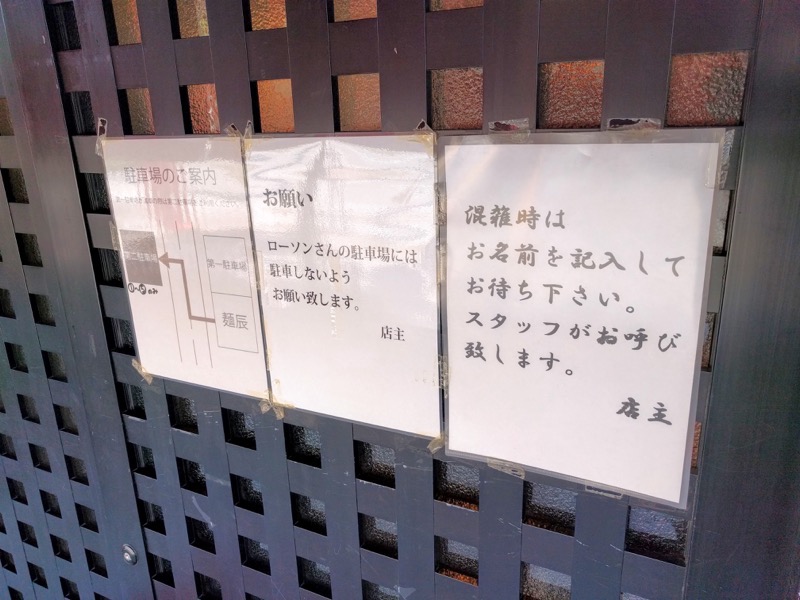 駐車場のご案内
第一駐車場
第二駐車場
麺辰
お願い
ローソンさんの駐車場には
駐車しないよう
お願い致します。
店主
混雑時は
お名前を記入して
お待ち下さい。
スタッフがお呼び
致します。
店主